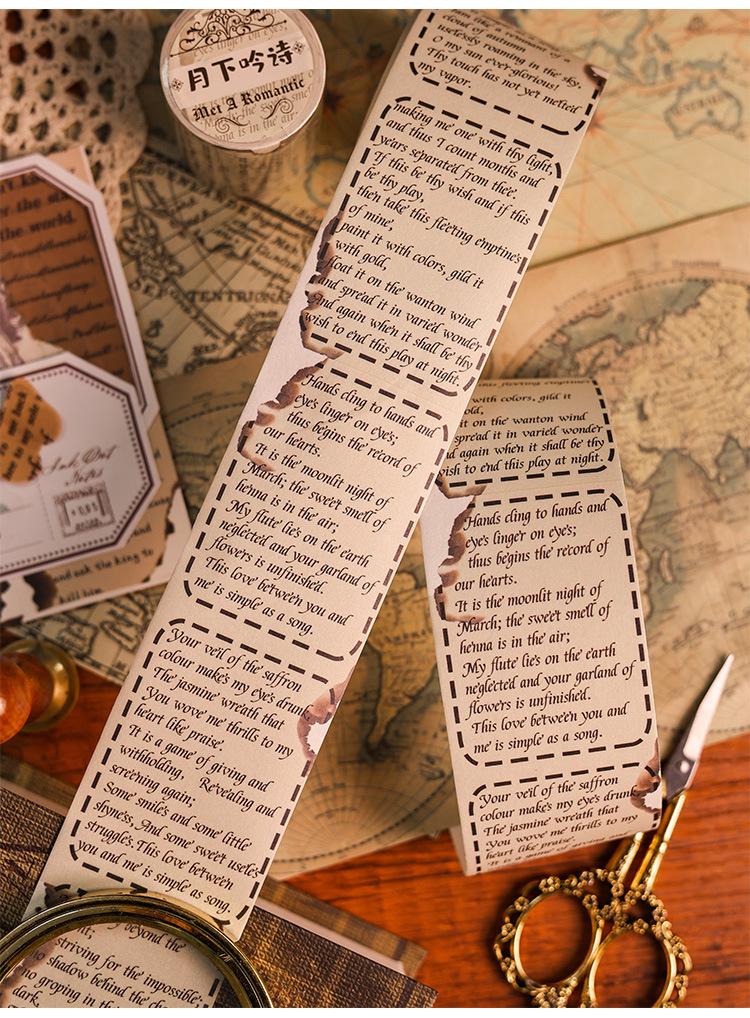 月下吟诗
Met A Romantic
am like a remnant of a
cloud of autumn
uselessly roaming in the sky,
O my sun ever-glorious!
Thy touch has not yet melted
my vapor,
making me one with thy light,
and thus I count months and
years separated from thee.
If this be thy wish and if this
be thy play,
then take this fleeting emptines
of mine,
paint it with colors, gild it
with gold,
float it on the wanton wind
and spread it in varied wonder
And again when it shall be thy
wish to end this play at night.
Hands cling to hands and
eyes linger on eyes;
thus begins the record of
our hearts.
It is the moonlit night of
March; the sweet smell of
henna is in the air;
My flute lies on the earth
neglected and your garland of
flowers is unfinished.
This love between you and
me is simple as a song.
Your veil of the saffron
colour makes my eyes drunk.
The jasmine wreath that
You wove me thrills to my
heart like praise.
It is a game of giving and
withholding, Revealing and
screening again;
Some smiles and some little
shyness, And some sweet useles
struggles. This love between
you and me is simple as song.
beyond the
striving for the impossible;
no shadow behind the ch
no groping in the
dark.
this fleeting emptines
with colors, gild it
old,
it on the wanton wind
spread it in varied wonder
d again when it shall be thy
wish to end this play at night.
Hands cling to hands and
eyes linger on eyes;
thus begins the record of
our hearts.
It is the moonlit night of
March; the sweet smell of
henna is in the air;
My flute lies on the earth
neglected and your garland of
flowers is unfinished.
This love between you and
me is simple as a song.
Your veil of the saffron
colour makes my eyes drunk.
The jasmine wreath that
You wove me thrills to my
heart like praise.
It is a game of giving and
the world.
Notes
and ask the king to
kill him
TENTRIONA